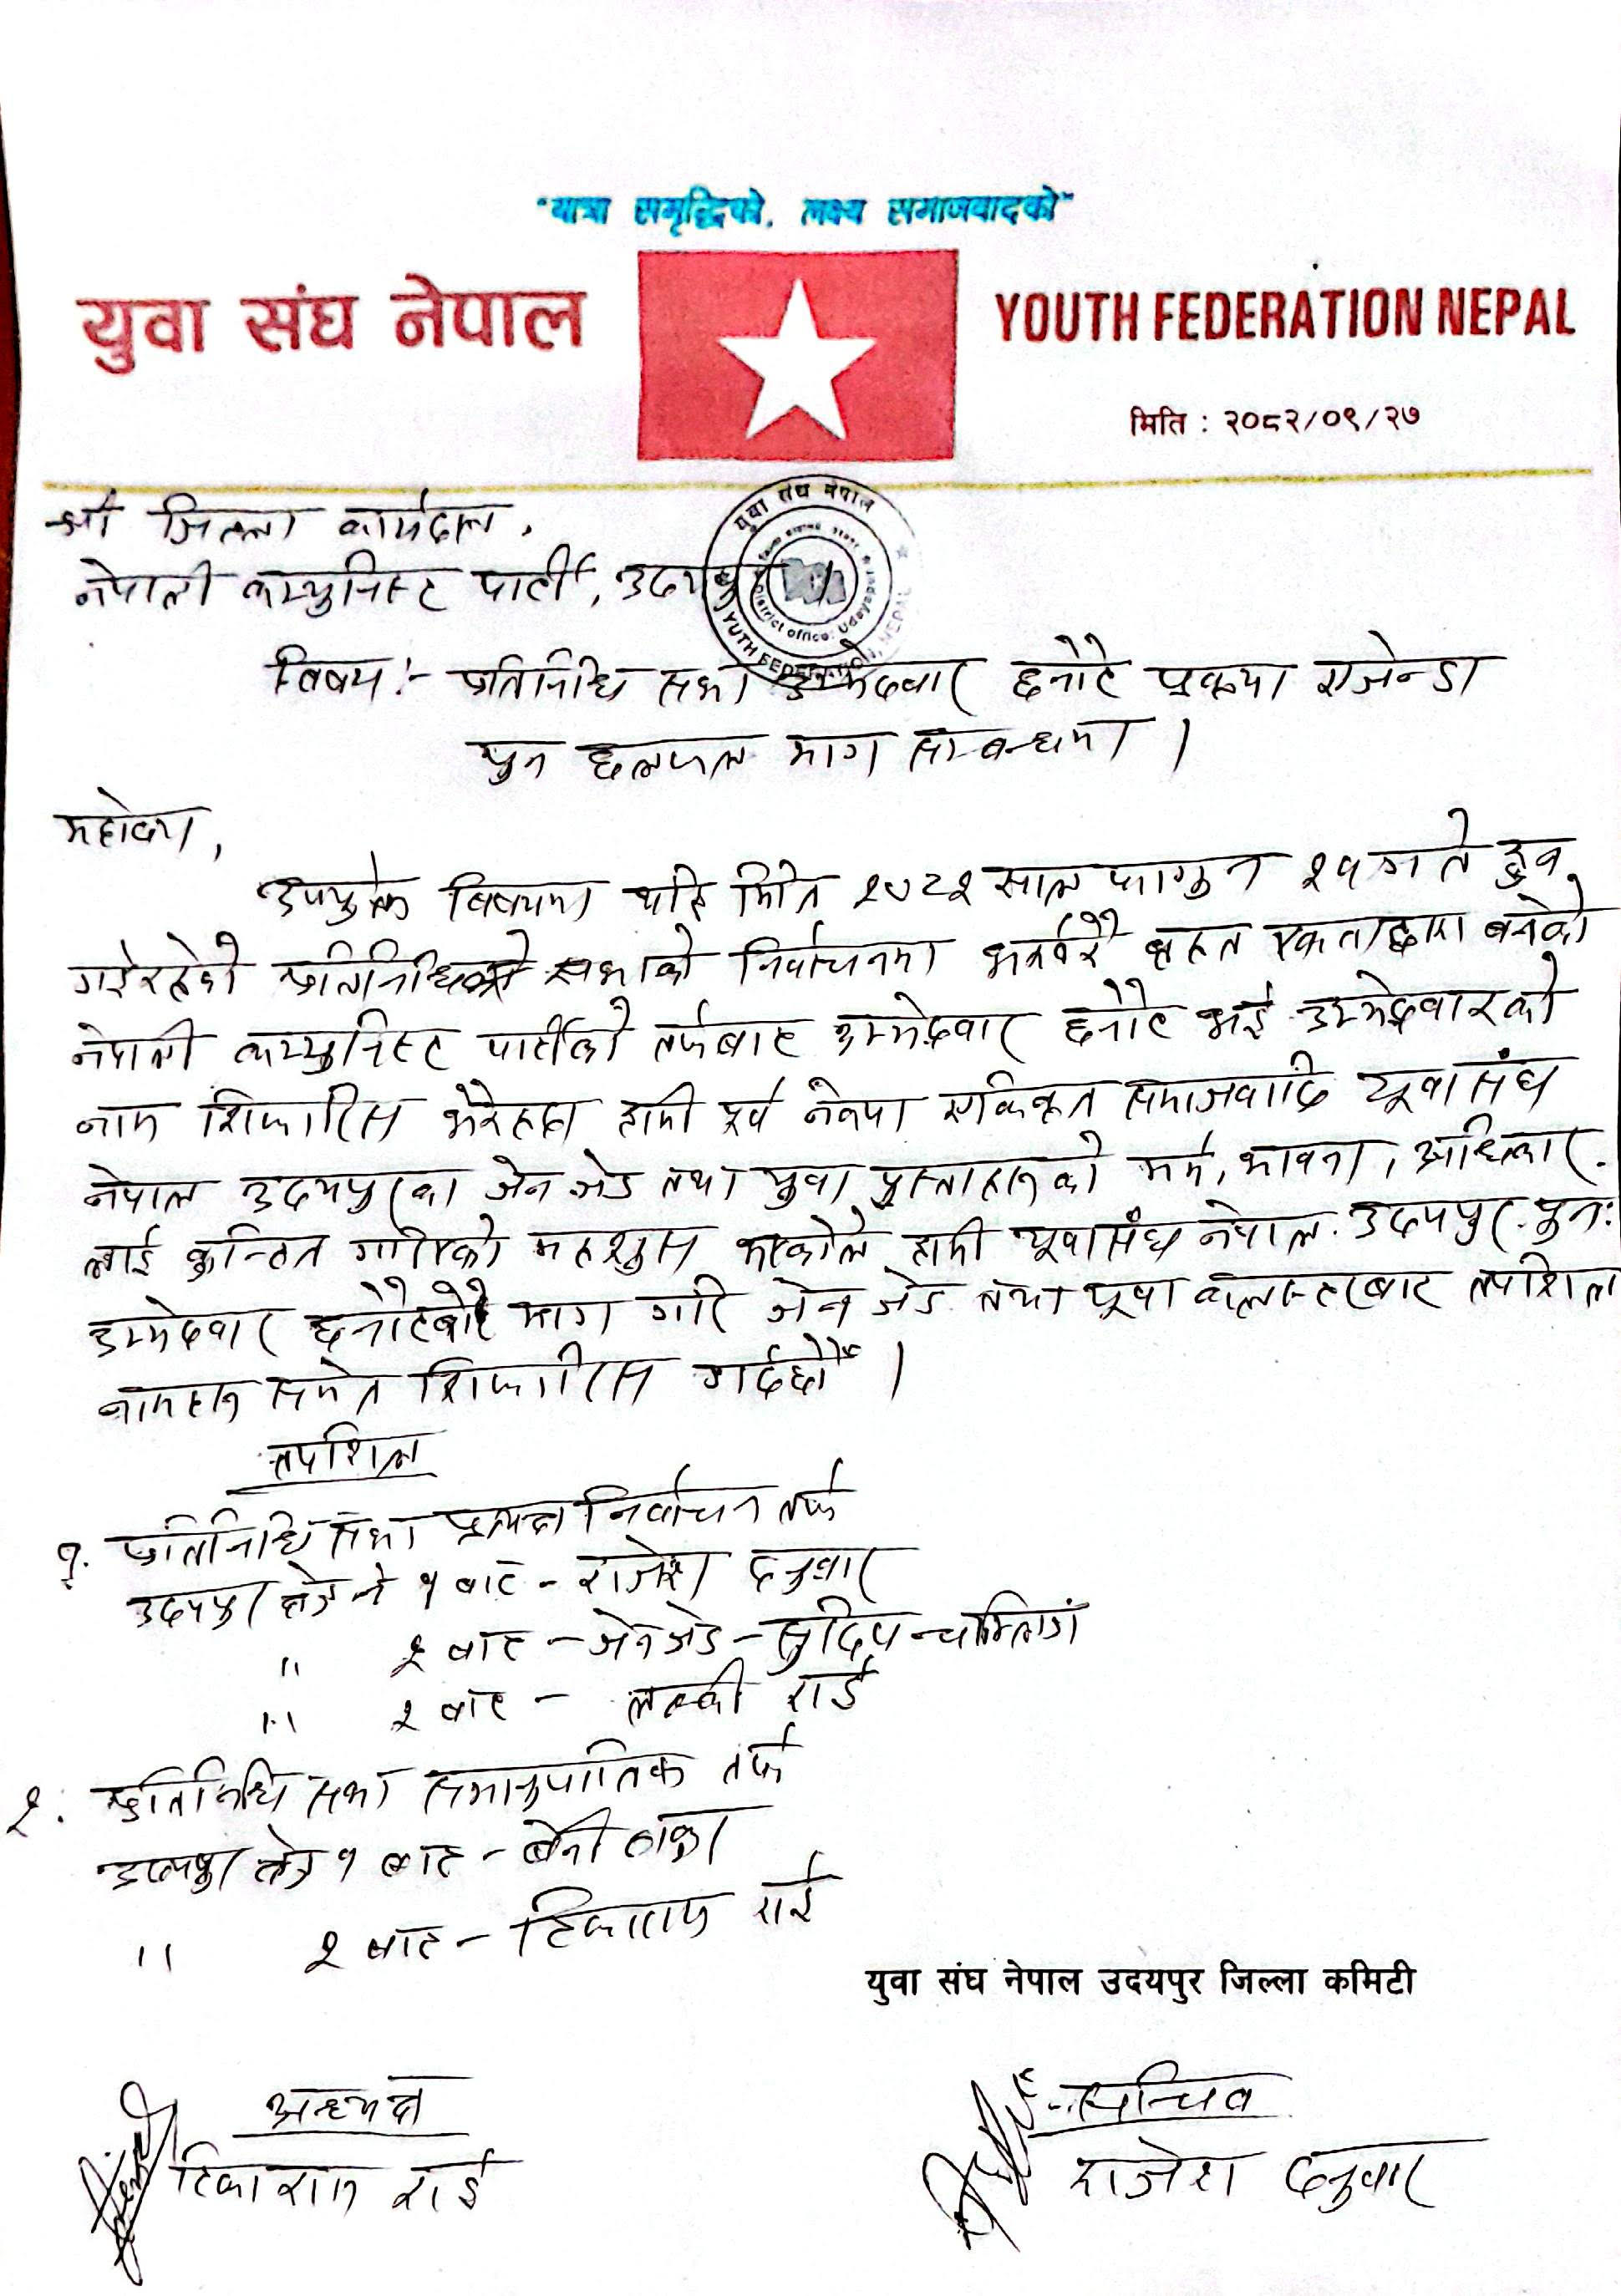 "यात्रा समृद्धिको, लक्ष्य समाजवादको"
युवा संघ नेपाल
YOUTH FEDERATION NEPAL
मिति : २०८२/०९/२७
युवा संघ नेपाल
District office: Udayapur
YOUTH FEDERATION, NEPAL
श्री जिल्ला कार्यदल,
नेपाली कम्युनिस्ट पार्टी, उदयपुर
विषय:- प्रतिनिधि सभा उम्मेदवार छनौट प्रक्रया एजेन्डा
पुन छलफल माग सम्बन्धमा।
महोदय,
उपयुक्त बिषयमा यहि मिति २०८२ साल फागुन २१ गते हुन
गईरहेको प्रतिनिधि सभाको निर्वाचनमा भर्खरै बृहत एकताद्वारा बनेको
नेपाली कम्युनिस्ट पार्टीको तर्फबाट उम्मेदवार छनौट भई उम्मेद्वारको
नाम सिफारिस भैरहदा हामी पूर्व नेकपा एकिकृत समाजवादि यूवा संघ
नेपाल उदयपुरका जेन जेड तथा युवा पुस्ताहरुको मर्म, भावना, अधिकार
लाई कुन्ठित गरिएको महशुस भएकोले हामी यूवा संघ नेपाल उदयपुर पुन:
उम्मेदवार छनौटको माग गरि जेन जेड तथा यूवा बाट तपशिल
नामहरु समेत सिफारिस गर्दछौँ।
तपशिल
१. प्रतिनिधि सभा प्रत्यक्ष निर्वाचन तर्फ
उदयपुर क्षेत्र नं १ बाट - राजेश दनुवार
" २ बाट - जेनजेड - सुदिप चाम्लिङ
" २ बाट - लक्की राई
२. प्रतिनिधि सभा समानुपातिक तर्फ
उदयपुर क्षेत्र १ बाट -
" २ बाट - टिकाराम राई
युवा संघ नेपाल उदयपुर जिल्ला कमिटी
अध्यक्ष
टिकाराम राई
सचिव
राजेश दनुवार